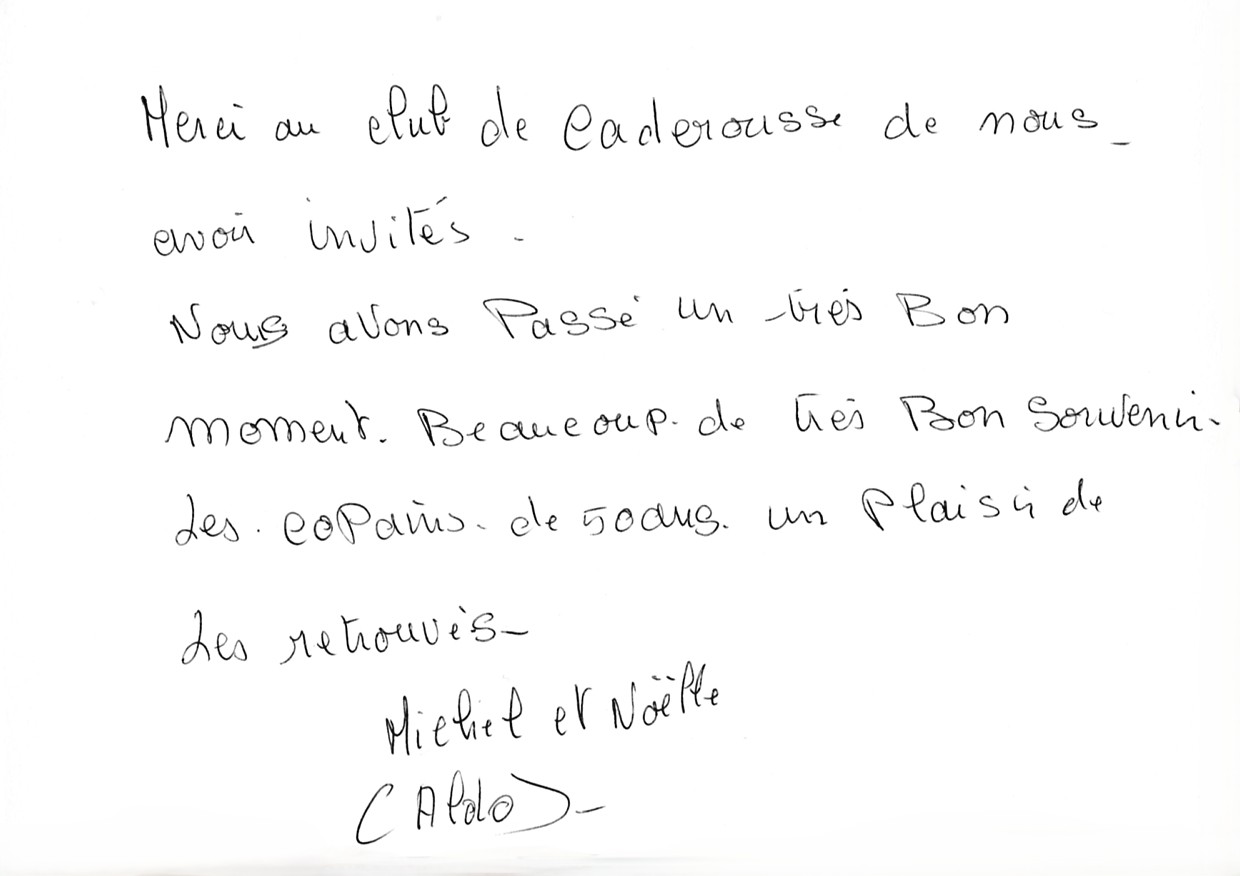 Merci au club de Caderousse de nous_
avoir invités.
Nous avons Passé un très Bon
moment. Beaucoup. de très Bon Souvenir.
Les. coPains. de 50ans. un Plaisir de
Les retrouvés_
Michel et Noëlle
(Aldo)_